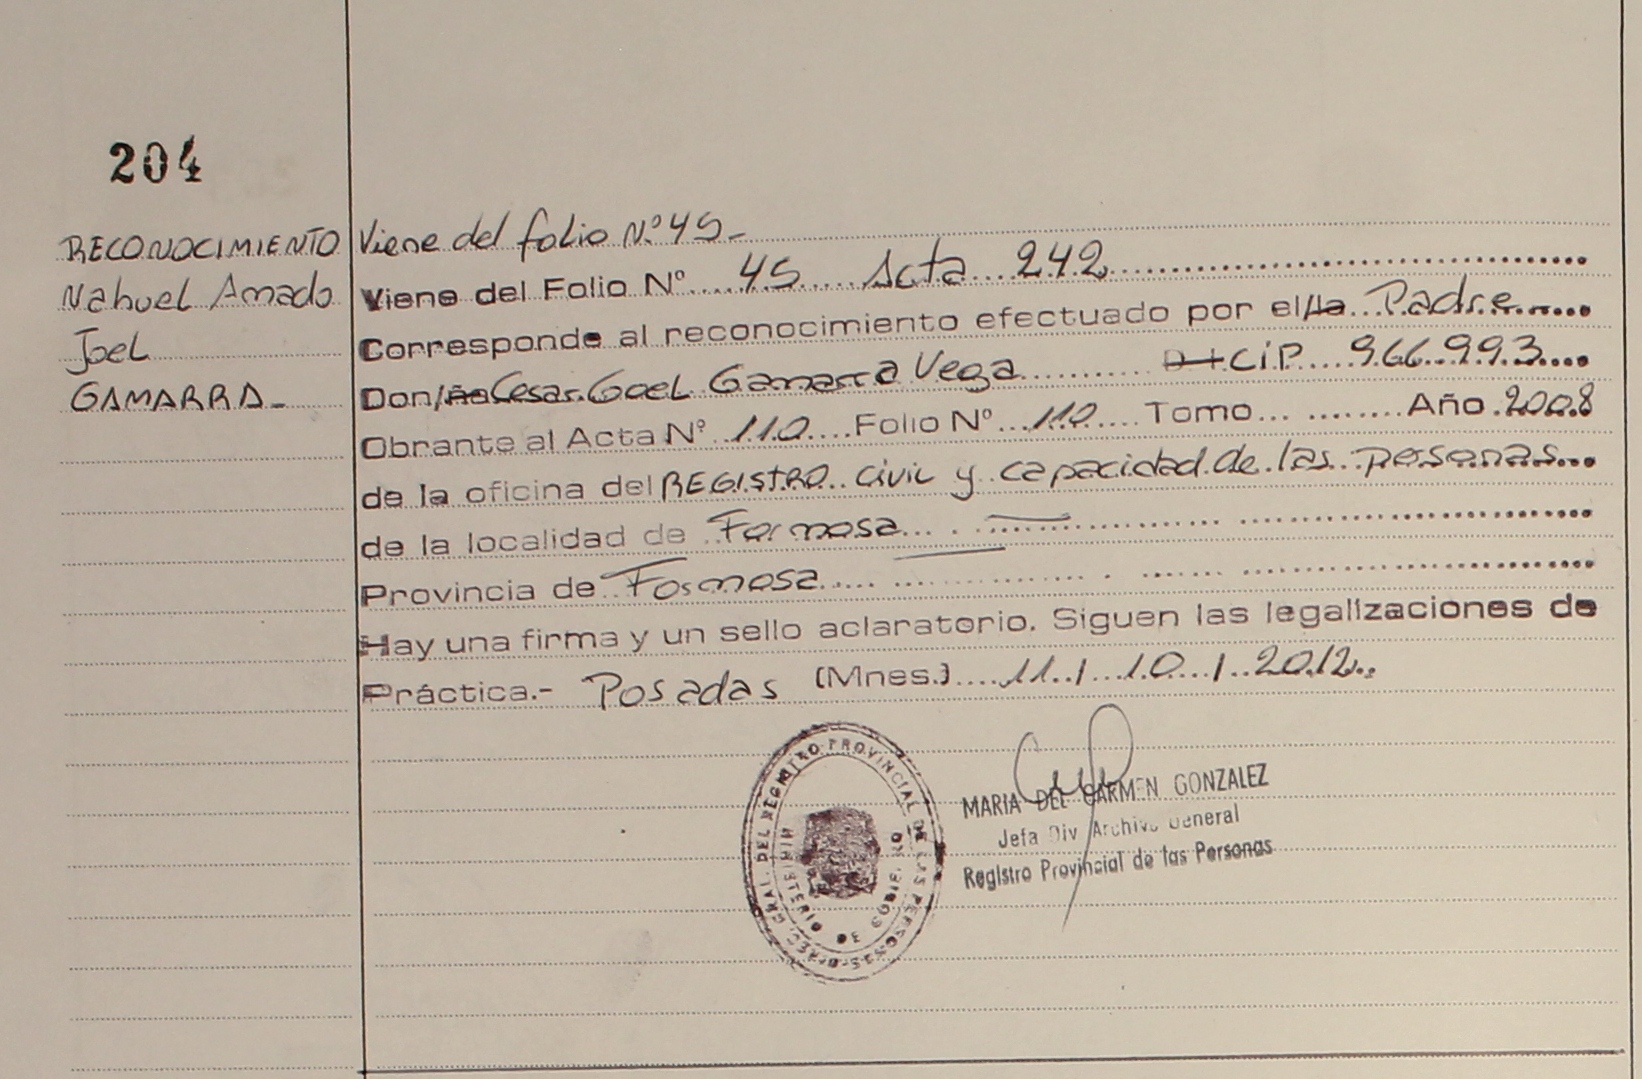 204
RECONOCIMIENTO
Nahuel Amado
Joel
GAMARRA-
Viene del folio Nº 45-
Viene del Folio Nº 45 Acta 242
Corresponde al reconocimiento efectuado por el/la Padre
Don/ña Cesar Goel Gamarra Vega D+CiP. 966.993
Obrante al Acta Nº 110 Folio Nº 110 Tomo Año 2008
de la oficina del REGISTRO civil y capacidad de las personas
de la localidad de Formosa
Provincia de Formosa
Hay una firma y un sello aclaratorio. Siguen las legalizaciones de
Práctica.- Posadas (Mnes.) 11 / 10 / 2012
DIREC. GRAL. DEL REGISTRO PROVINCIAL DE LAS PERSONAS
MINISTERIO DE GOBIERNO
MARIA DEL CARMEN GONZALEZ
Jefa Div Archivo General
Registro Provincial de las Personas